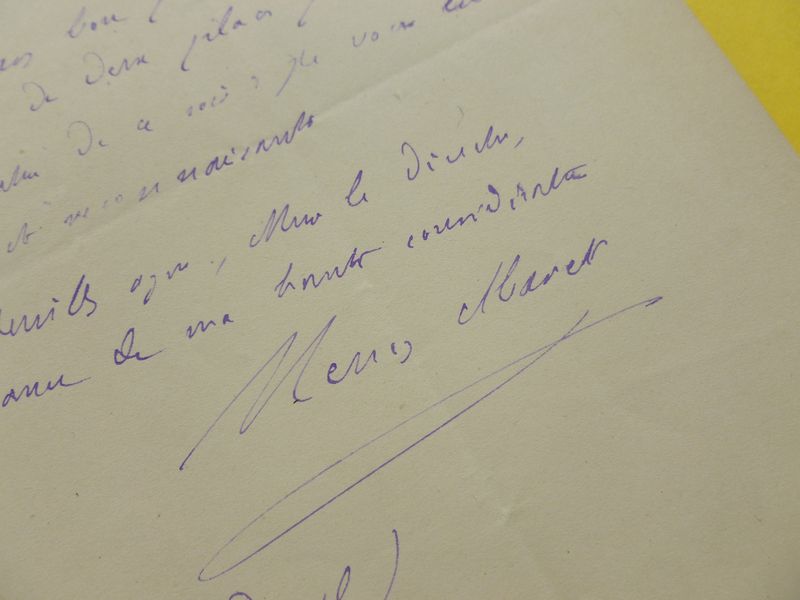 bon
de deux places
de ce soir, je vous en
reconnaissant
Veuillez agréer, Mons le Directeur,
de ma haute considération
Henry Maret